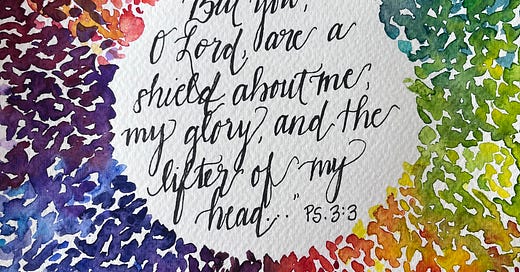 "But You,
O Lord, are a
shield about me,
my glory, and the
lifter of my
head..." PS. 3:3